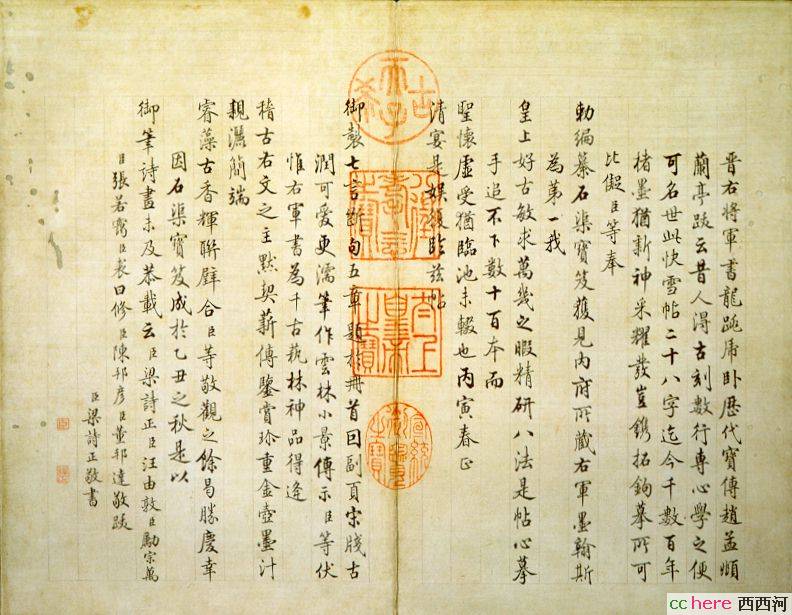 晉右將軍書龍跳虎臥歷代寶傳趙孟頫
蘭亭跋云昔人得古刻數行專心學之便
可名世此快雪帖二十八字迄今千數百年
楮墨猶新神采耀發豈鐫拓鉤摹所可
比儗臣等奉
勅編纂石渠寶笈獲見內府所藏右軍墨翰斯
為第一我
皇上好古敏求萬幾之暇精研八法是帖心摹
手追不下數十百本而
聖懷虛受猶臨池未輟也丙寅春正
清宴是娛復臨茲帖
御製七言斷句五章題於冊首回副頁宋牋古
潤可愛更濡筆作雲林小景傳示臣等伏
惟右軍書為千古藝林神品得逢
稽古右文之主默契薪傳鑒賞珍重金壺墨汁
親灑簡端
睿藻古香輝聯璧合臣等敬觀之餘曷勝慶幸
因石渠寶笈成於乙丑之秋是以
御筆詩畫未及恭載云臣梁詩正臣汪由敦臣勵宗萬
臣張若靄臣裘曰修臣陳邦彥臣董邦達敬跋
臣梁詩正敬書
古稀天子
壽
太上皇帝之寶
cchere 西西河